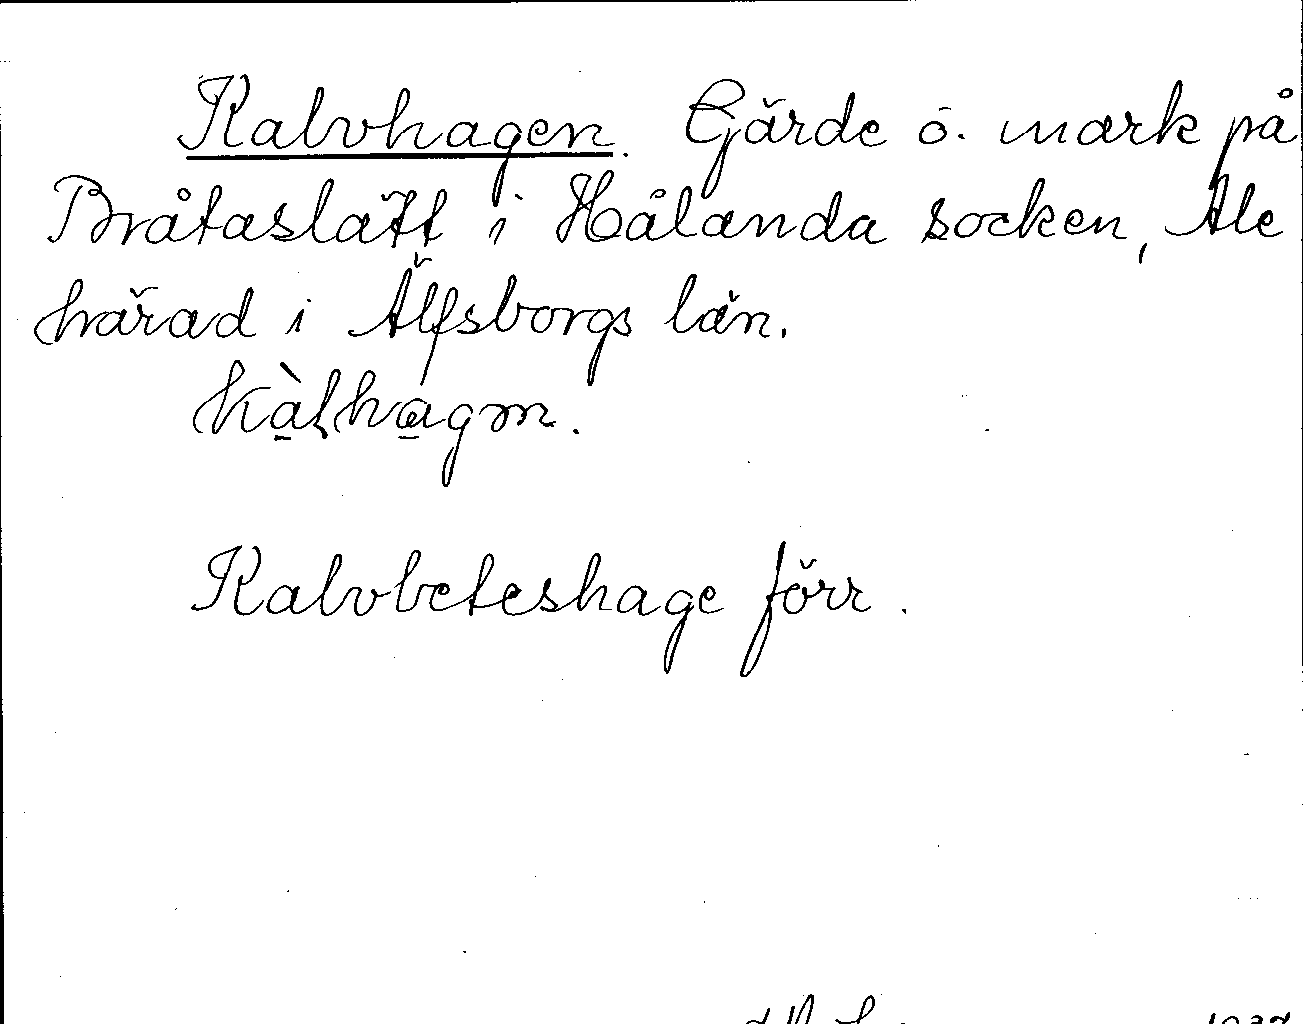 Kalvhagen. Gärde o. mark på
Bråtaslätt i Hålanda socken, Ale
härad i Älfsborgs län.
Kàlhagm.
Kalvbeteshage förr.